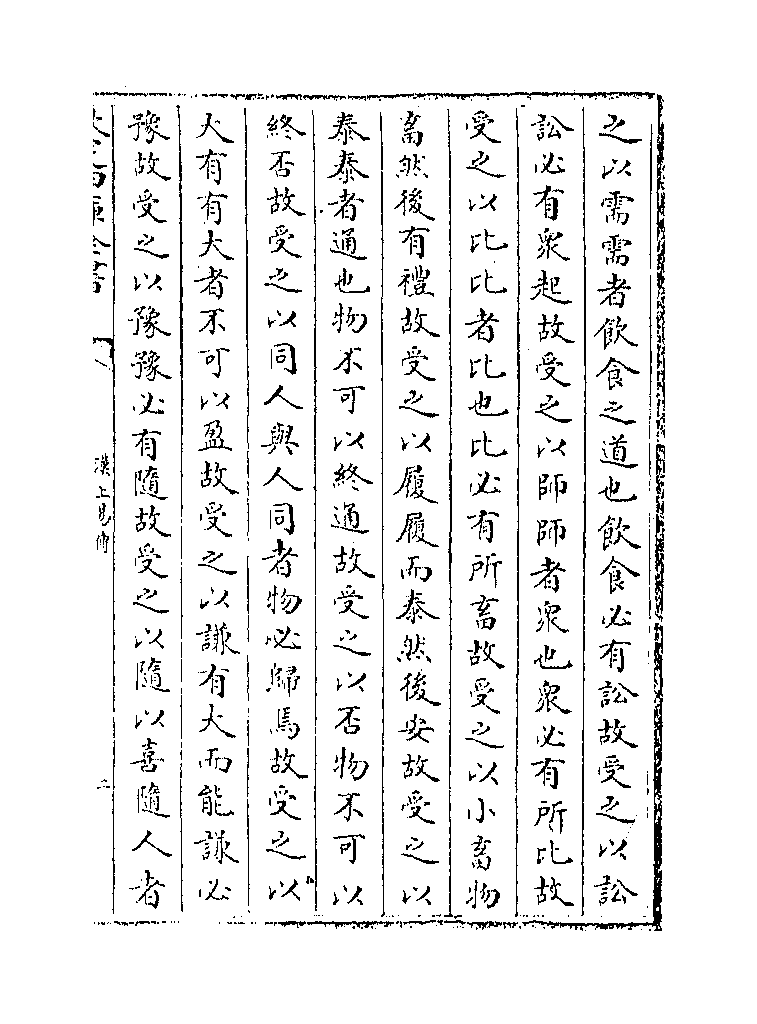 之以需需者飲食之道也飲食必有訟故受之以訟
訟必有衆起故受之以師師者衆也衆必有所比故
受之以比比者比也比必有所畜故受之以小畜物
畜然後有禮故受之以履履而泰然後安故受之以
泰泰者通也物不可以終通故受之以否物不可以
終否故受之以同人與人同者物必歸焉故受之以
大有有大者不可以盈故受之以謙有大而能謙必
豫故受之以豫豫必有隨故受之以隨以喜隨人者
漢上易傳